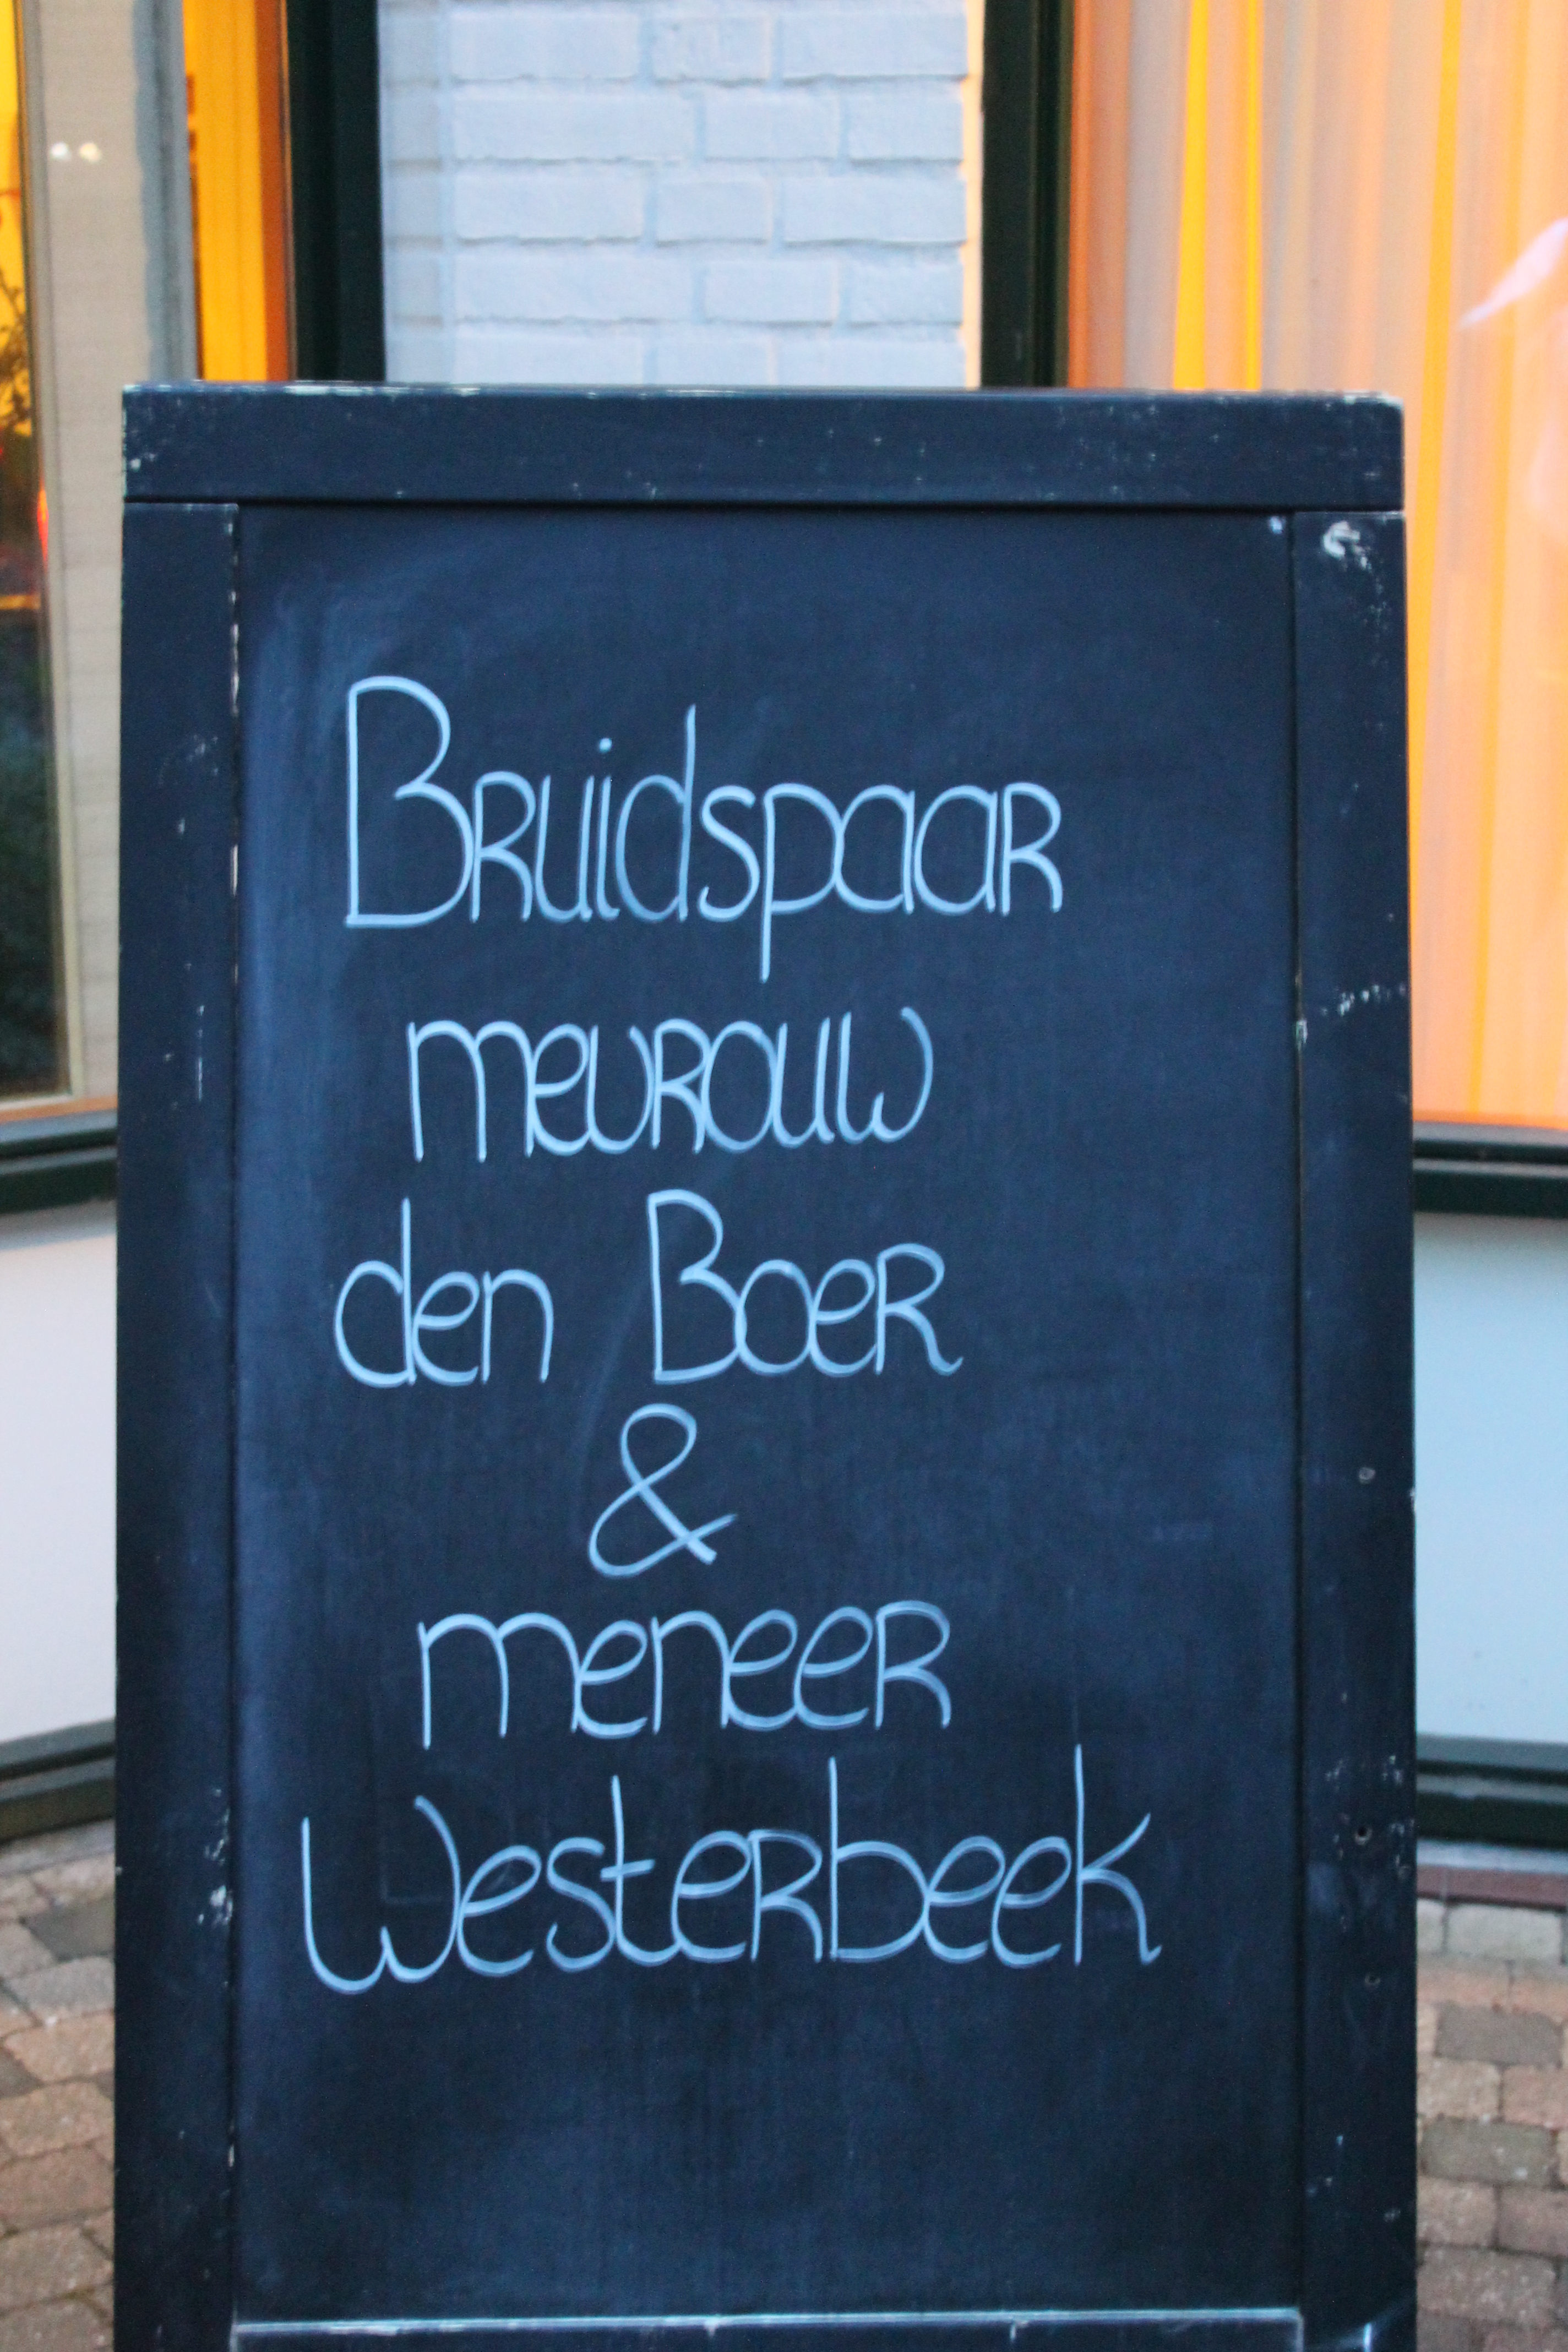 Bruidspaar
mevrouw
den Boer
&
meneer
Westerbeek